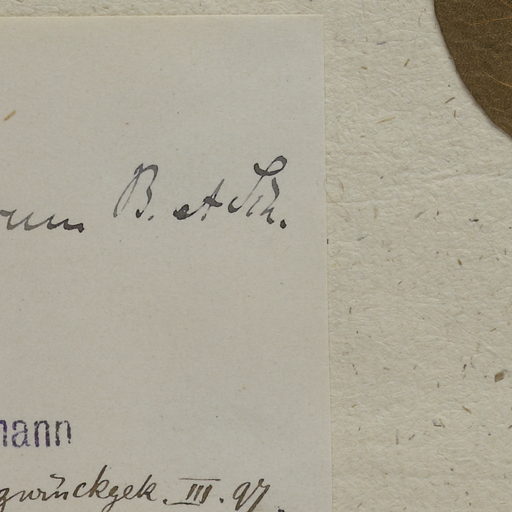 rum B. et Sch.
mann
zurückgek. III. 97.